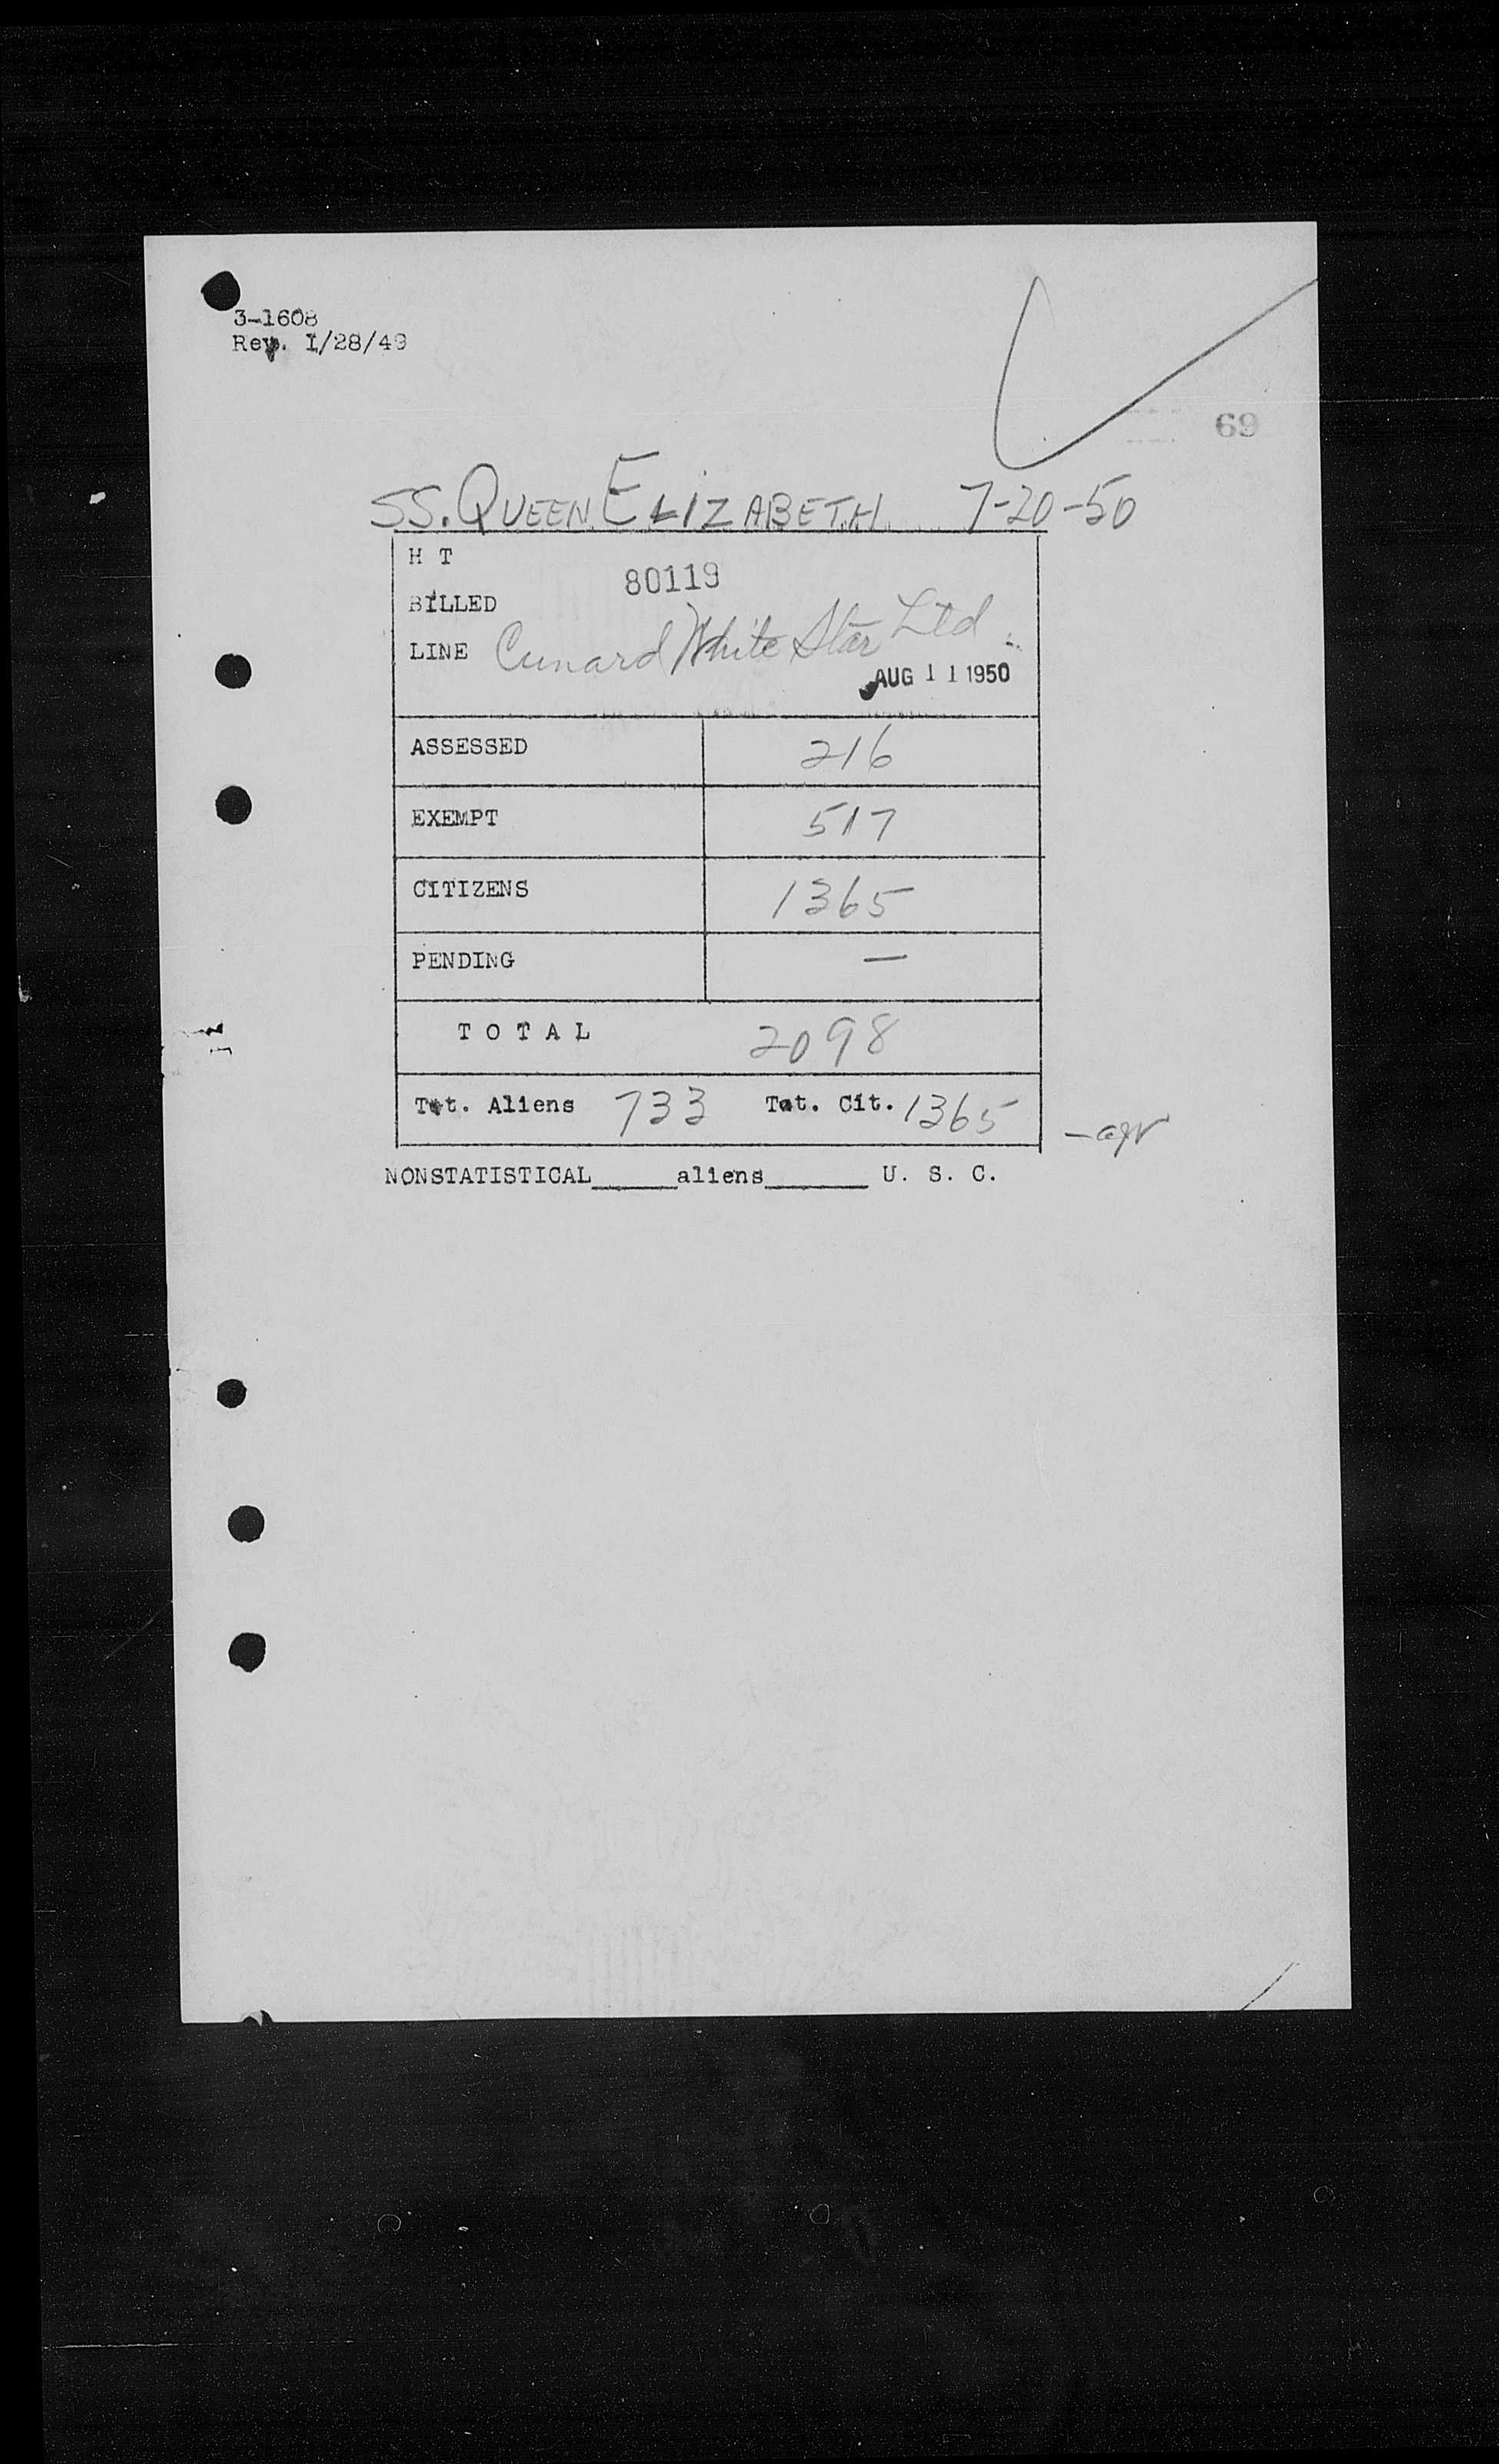 3-1608
Rev. 1/28/49
69
SS. QUEEN ELIZABETH 7-20-50
H T
80119
BILLED
LINE Cunard White Star Ltd.
AUG 11 1950
ASSESSED 216
EXEMPT 517
CITIZENS 1365
PENDING —
T O T A L 2098
Tot. Aliens 733 Tot. Cit. 1365
NONSTATISTICAL_____aliens______ U. S. C.